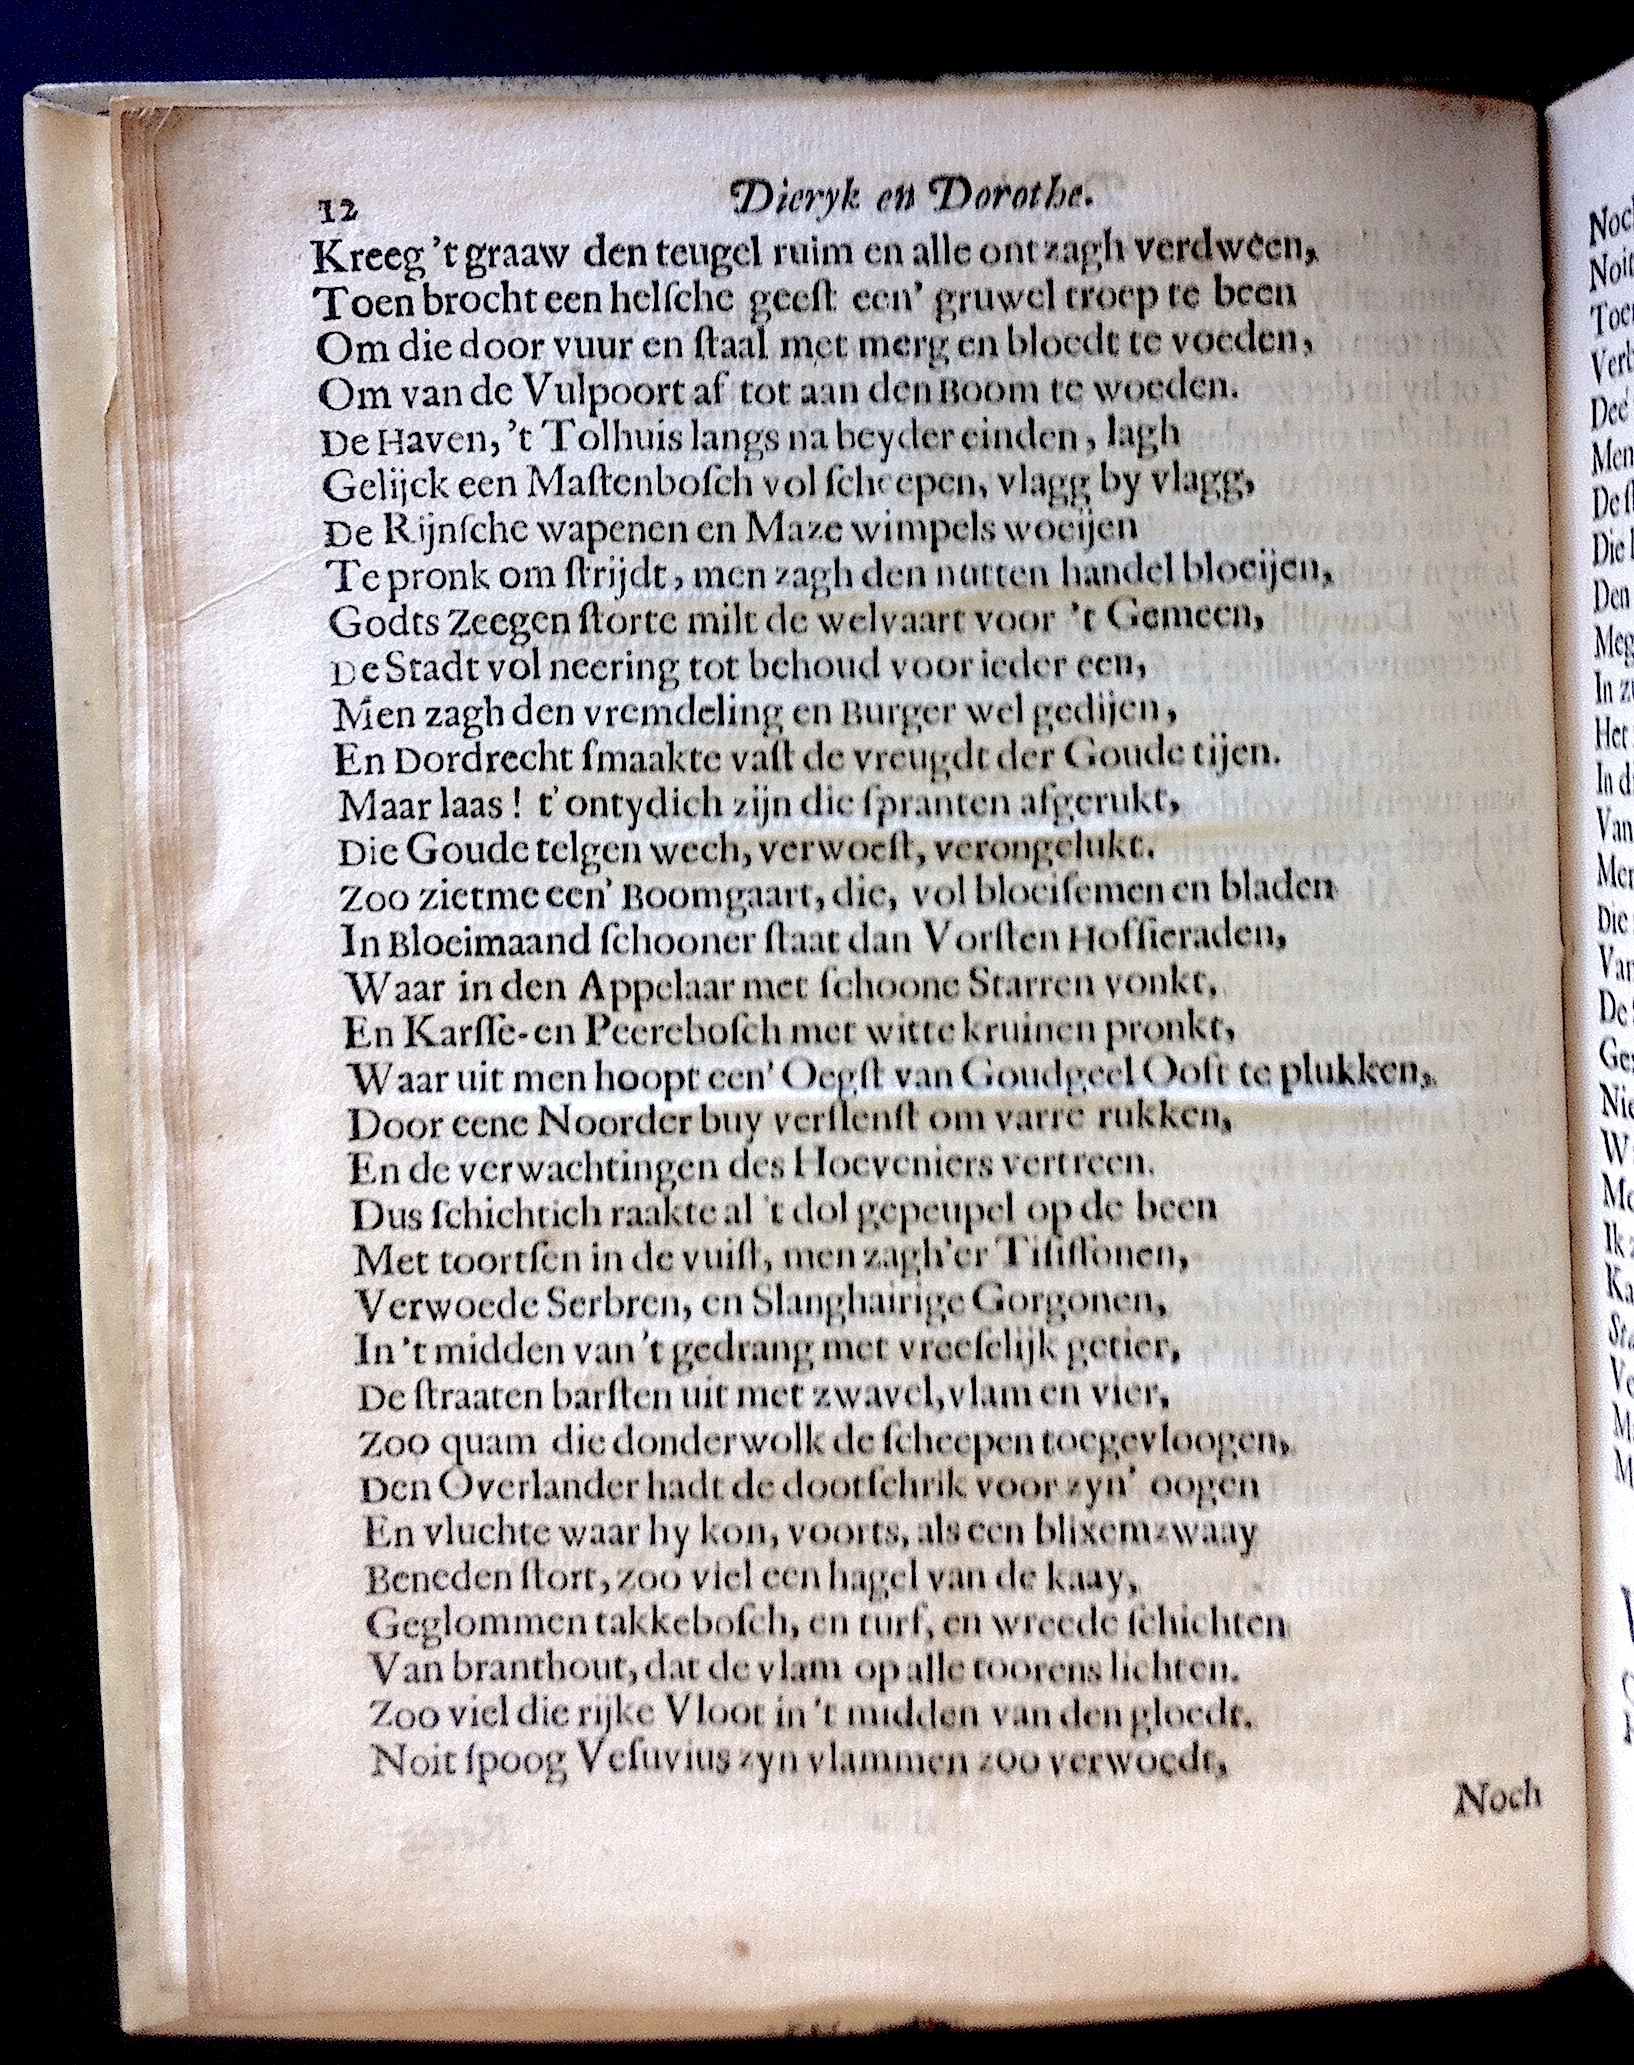 12 Dieryk en Dorothe.
Kreeg 't graaw den teugel ruim en alle ontzagh verdween,
Toen brocht een helſche geeſt een' gruwel troep te been
Om die door vuur en ſtaal met merg en bloedt te voeden,
Om van de Vulpoort af tot aan den Boom te woeden.
De Haven, 't Tolhuis langs na beyder einden, lagh
Gelijck een Maſtenboſch vol ſcheepen, vlagg by vlagg,
De Rijnſche wapenen en Maze wimpels woeijen
Te pronk om ſtrijdt, men zagh den nutten handel bloeijen,
Godts Zeegen ſtorte milt de welvaart voor 't Gemeen,
De Stadt vol neering tot behoud voor ieder een,
Men zagh den vremdeling en Burger wel gedijen,
En Dordrecht ſmaakte vaſt de vreugdt der Goude tijen.
Maar laas! t'ontydich zijn die ſpranten afgerukt,
Die Goude telgen wech, verwoeſt, verongelukt.
Zoo zietme een' Boomgaart, die, vol bloeiſemen en bladen
In Bloeimaand ſchooner ſtaat dan Vorſten Hofſieraden,
Waar in den Appelaar met ſchoone Starren vonkt,
En Karſſe-en Peereboſch met witte kruinen pronkt,
Waar uit men hoopt een' Oegſt van Goudgeel Ooft te plukken,
Door eene Noorder buy verſlenſt om varre rukken,
En de verwachtingen des Hoeveniers vertreen.
Dus ſchichtich raakte al 't dol gepeupel op de been
Met toortſen in de vuiſt, men zagh'er Tiſiſſonen,
Verwoede Serbren, en Slanghairige Gorgonen,
In 't midden van 't gedrang met vreeſelijk getier,
De ſtraaten barſten uit met zwavel, vlam en vier,
Zoo quam die donderwolk de ſcheepen toegevloogen,
Den Overlander hadt de dootſchrik voor zyn' oogen
En vluchte waar hy kon, voorts, als een blixemzwaay
Beneden ſtort, zoo viel een hagel van de kaay,
Geglommen takkeboſch, en turf, en wreede ſchichten
Van branthout, dat de vlam op alle toorens lichten.
Zoo viel die rijke Vloot in 't midden van den gloedt.
Noit ſpoog Veſuvius zyn vlammen zoo verwoedt,
Noch